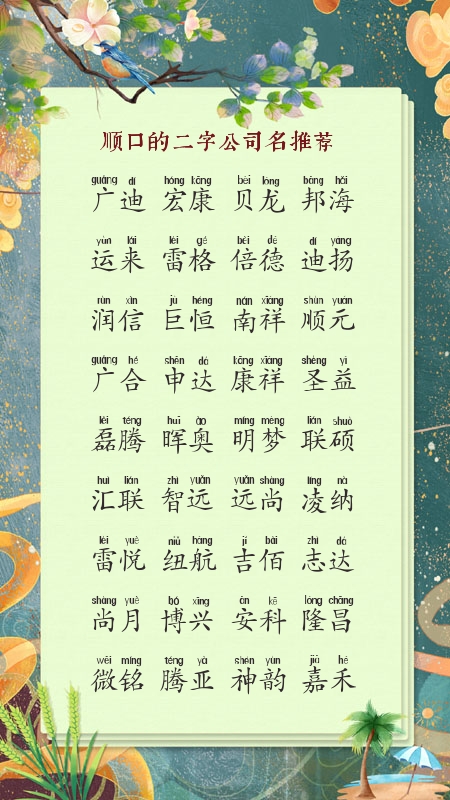 顺口的二字公司名推荐
guǎng dí hóng kāng bèi lóng bāng hǎi
广迪 宏康 贝龙 邦海
yùn lái léi gé bèi dé dí yáng
运来 雷格 倍德 迪扬
rùn xìn jù héng nán xiáng shùn yuán
润信 巨恒 南祥 顺元
guǎng hé shēn dá kāng xiáng shèng yì
广合 申达 康祥 圣益
lěi téng huī ào míng mèng lián shuò
磊腾 晖奥 明梦 联硕
huì lián zhì yuǎn yuǎn shàng líng nà
汇联 智远 远尚 凌纳
léi yuè niǔ háng jí bǎi zhì dá
雷悦 纽航 吉佰 志达
shàng yuè bó xīng ān kē lóng chāng
尚月 博兴 安科 隆昌
wēi míng téng yà shén yùn jiā hé
微铭 腾亚 神韵 嘉禾